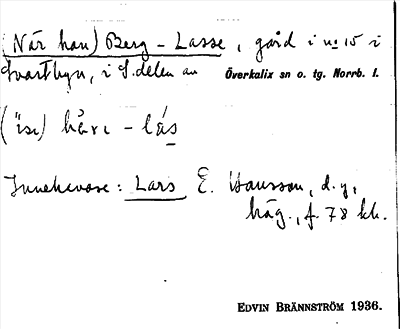 (När han) Berg-Lasse, gård i no 15 i
Svartbyn, i S. delen av Överkalix sn o. tg. Norrb. l.
Innehavare: Lars E. Hansson, d.y.,
häg., f. 78 kk.
EDVIN BRÄNNSTRÖM 1936.